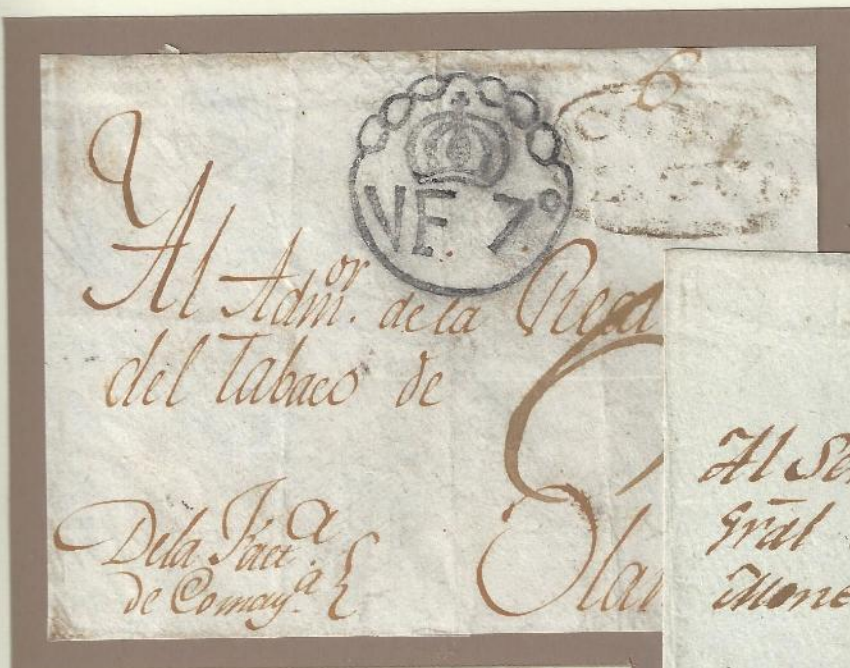 6
VF. 7.º
Al Adm.or de la Real
del Tabaco de
Olan
De la Fact.a
de Comay.a
Al Se
Gral
Mone